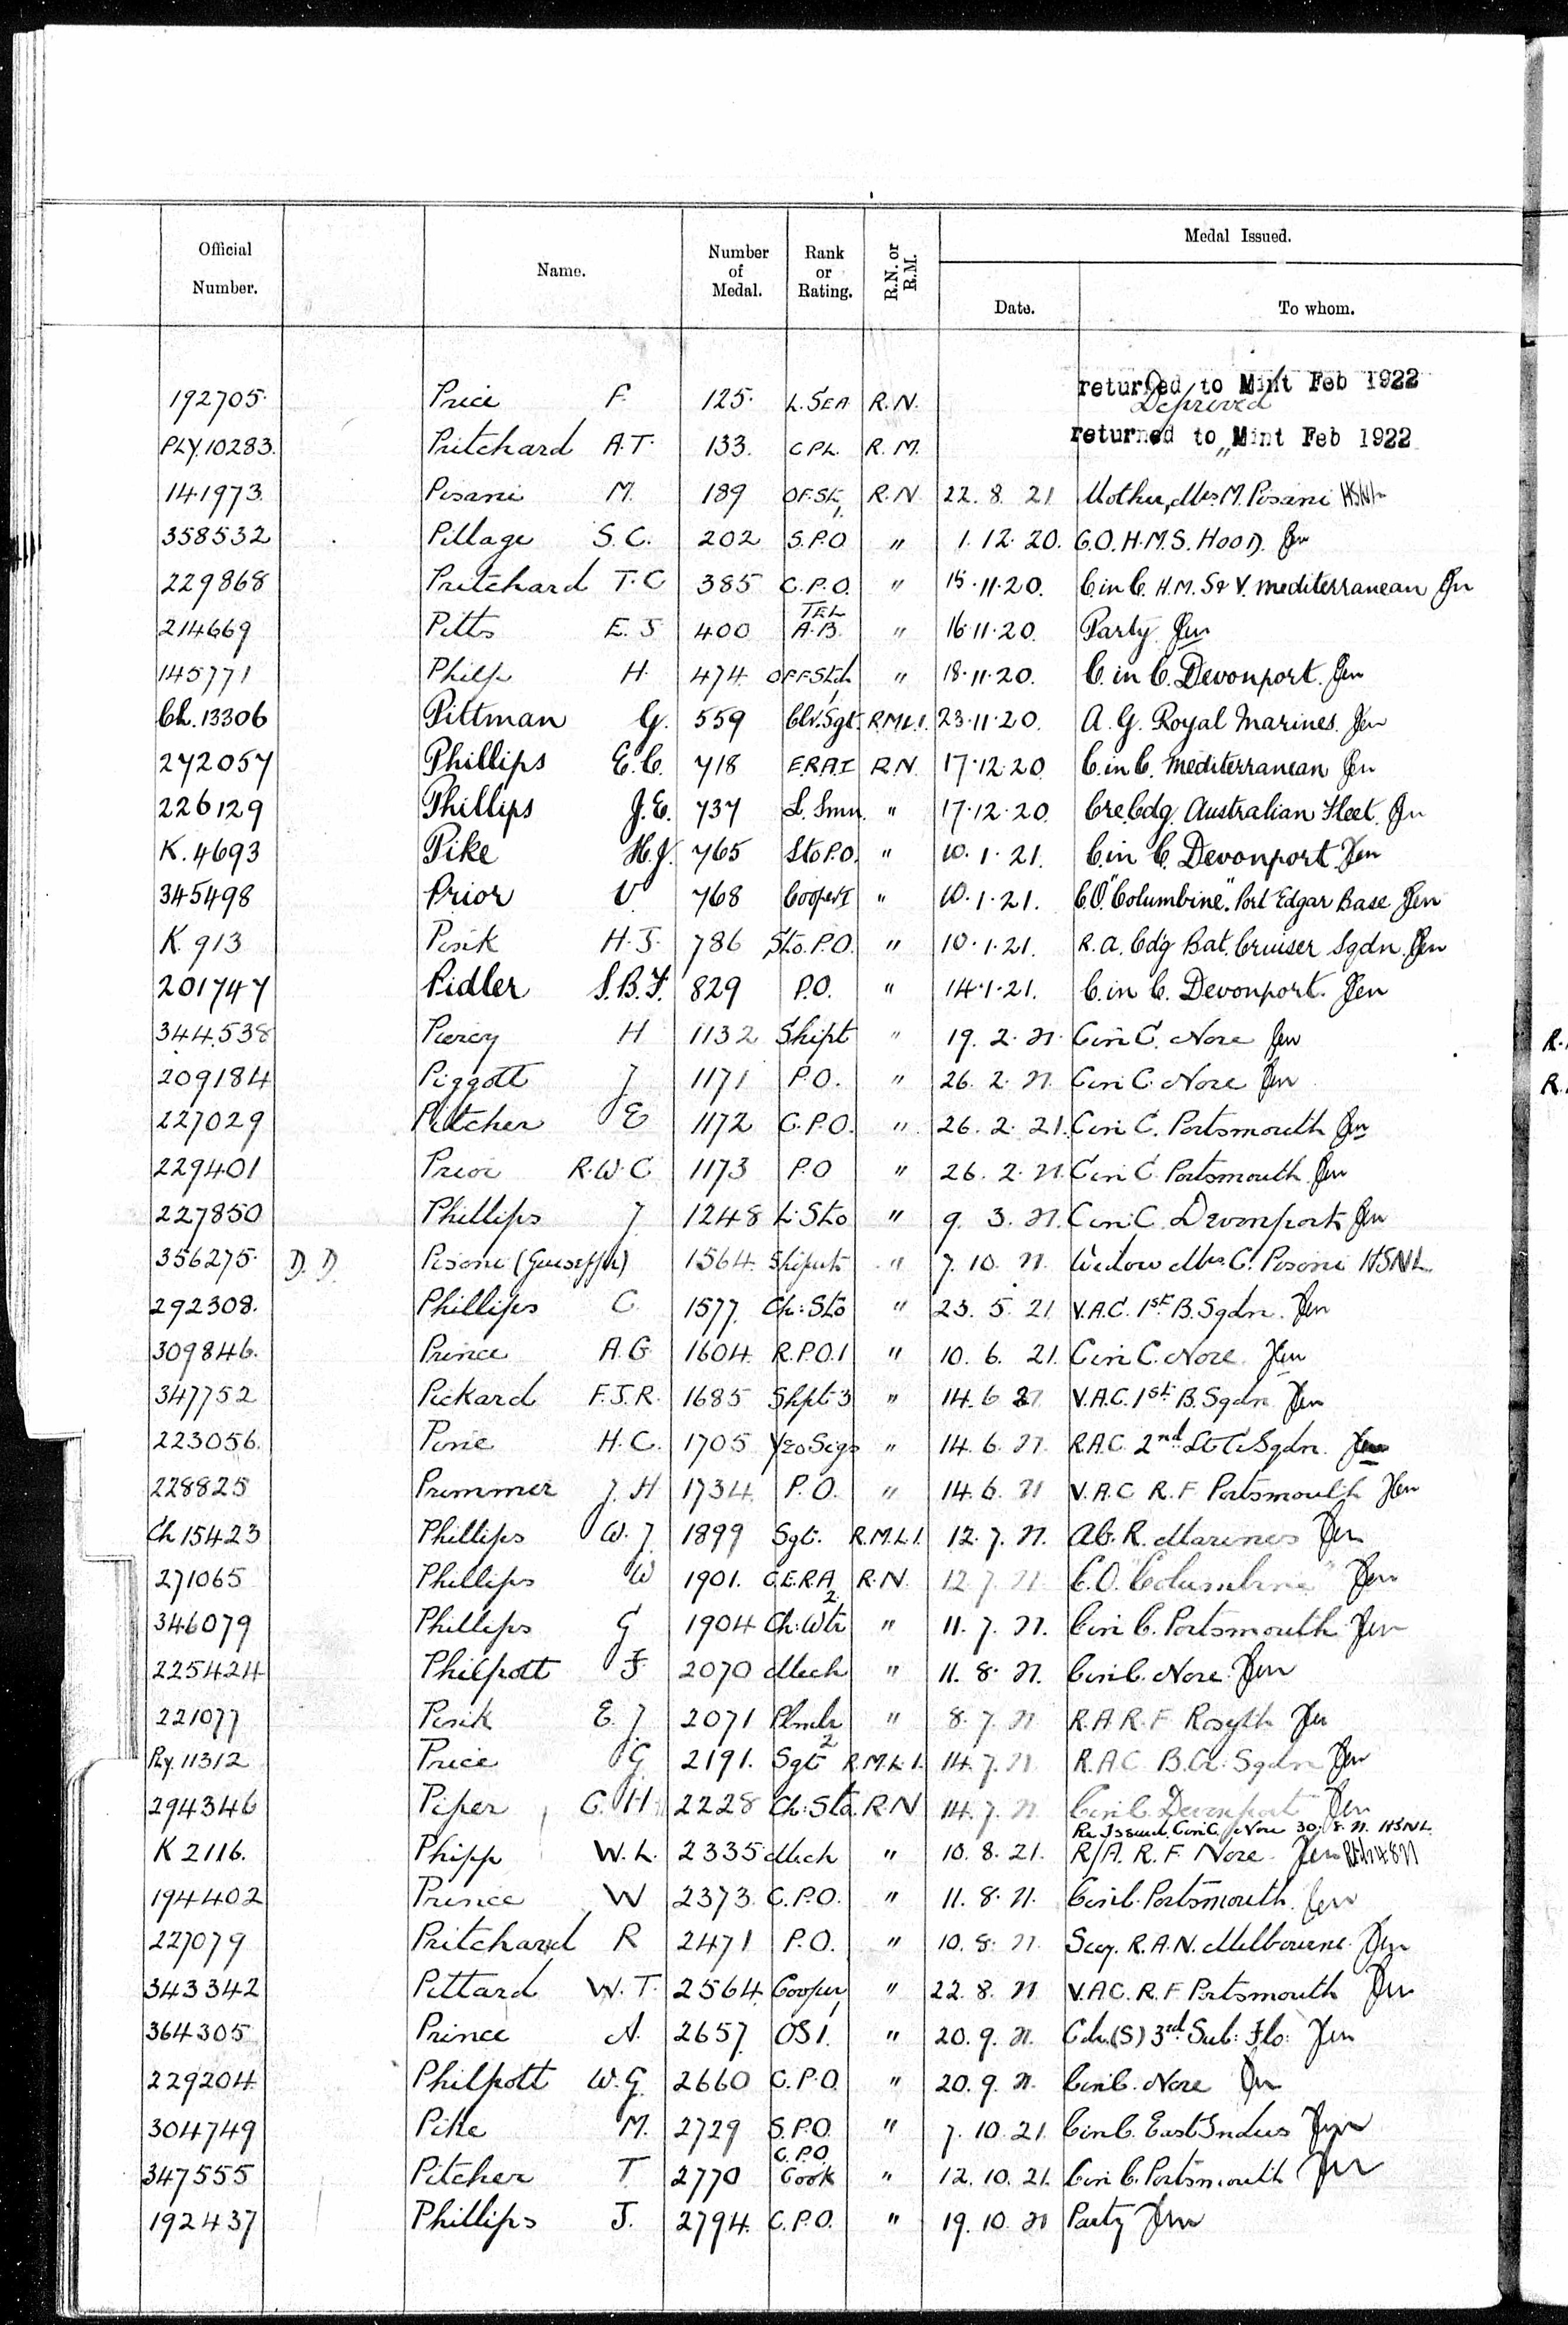 Official Number. Name. Number of Medal. Rank or Rating. R.N. or R.M. Medal Issued.
Date. To whom.
returned to Mint Feb 1922
192705. Price F. 125. L. SEA R.N. Deprived
returned to Mint Feb 1922
PLY.10283. Pritchard A.T. 133. CPL. R.M. "
141973. Pisani M. 189 OF.St.1 R.N. 22.8.21 Mother, Mrs. M. Pisani HSNL
358532 Pillage S.C. 202 S.P.O " 1.12.20. C.O. H.M.S. HOOD.
229868 Pritchard T.C 385 C.P.O. TEL " 15.11.20. C.in C. H.M. S & V. Mediterranean
214669 Pitts E.J 400 A.B. " 16.11.20. Party
145771 Philp H. 474. OFF.Std1 " 18.11.20. C. in C. Devonport.
Ch.13306 Pittman G. 559 Clr.Sgt. R.M.L.I. 23.11.20. A.G. Royal Marines.
272057 Phillips E.C. 718 E.R.A.I R.N. 17.12.20. C.in C. Mediterranean
226129 Phillips J.E. 737 L. Smn. " 17.12.20. Cre.Cdg. Australian Fleet.
K.4693 Pike H.J. 765 Sto P.O. " 10.1.21. C.in C. Devonport
345498 Prior V 768 Cooper I " 10.1.21. C.O. "Columbine". Port Edgar Base
K.913 Pink H.J. 786 Sto. P.O. " 10.1.21. R.A. Cdg Bat. Cruiser Sqdn.
201747 Pidler S.B.F. 829 P.O. " 14.1.21. C.in C. Devonport.
344538 Piercy H 1132 Shipt " 19.2.21. C in C. Nore
209184 Piggott J 1171 P.O. " 26.2.21. C in C. Nore
227029 Pitcher E 1172 C.P.O. " 26.2.21. C in C. Portsmouth
229401 Prior R.W.C 1173 P.O " 26.2.21. C in C. Portsmouth
227850 Phillips J 1248 L. Sto " 9.3.21. C in C. Devonport
356275. D.D. Pisoni (Guiseppi) 1564. Shipwt " 7.10.21. Widow Mrs. C. Pisoni HSNL
292308. Phillips C. 1577. Ch: Sto " 23.5.21 V.A.C. 1st B. Sqdn.
309846. Prince A.G 1604. R.P.O.1 " 10.6.21. C in C. Nore
347752 Pickard F.J.R. 1685 Shpt 3 " 14.6.21 V.A.C. 1st B. Sqdn
223056. Pine H.C. 1705 Yeo Sigs " 14.6.21. R.A.C. 2nd Lt C Sqdn.
228825 Primmer J.H 1734. P.O. " 14.6.21 V.A.C R.F Portsmouth
Ch 15423 Phillips W.J 1899 Sgt. R.M.L.I. 12.7.21. A.G. R. Marines
271065 Phillips W 1901. C.E.R.A 2 R.N. 12.7.21. C.O. "Columbine"
346079 Phillips G 1904 Ch: Wtr " 11.7.21. C in C. Portsmouth
225424 Philpott F. 2070 Mech " 11.8.21. C in C. Nore
221077 Pink E.J 2071 Plmbr 2 " 8.7.21 R.A.R.F Rosyth
Ply.11312 Price G 2191. Sgt R.M.L.I. 14.7.21. R.A.C B.Cr. Sqdn
294346 Piper C.H 2228 Ch: Sto R.N 14.7.21 C in C. Devonport
Re Issued. C in C. Nore 30.8.21. HSNL.
K 2116. Phipp W.L. 2335 Mech " 10.8.21. R/A. R.F Nore
194402 Prince W 2373. C.P.O. " 11.8.21. C in C. Portsmouth
227079 Pritchard R 2471 P.O. " 10.8.21. Secy. R.A.N. Melbourne
343342 Pittard W.T. 2564. Cooper 1 " 22.8.21 V.A.C. R.F Portsmouth
364305 Prince A. 2657 OS 1. " 20.9.21. Cdr.(S) 3rd Sub: Flo:
229204. Philpott W.G. 2660 C.P.O. " 20.9.21. C in C. Nore
304749 Pike M. 2729 S.P.O. " 7.10.21. C in C. East Indies
347555 Pitcher T 2770 C.P.O. Cook " 12.10.21. C in C. Portsmouth
192437 Phillips J. 2794. C.P.O. " 19.10.21 Party